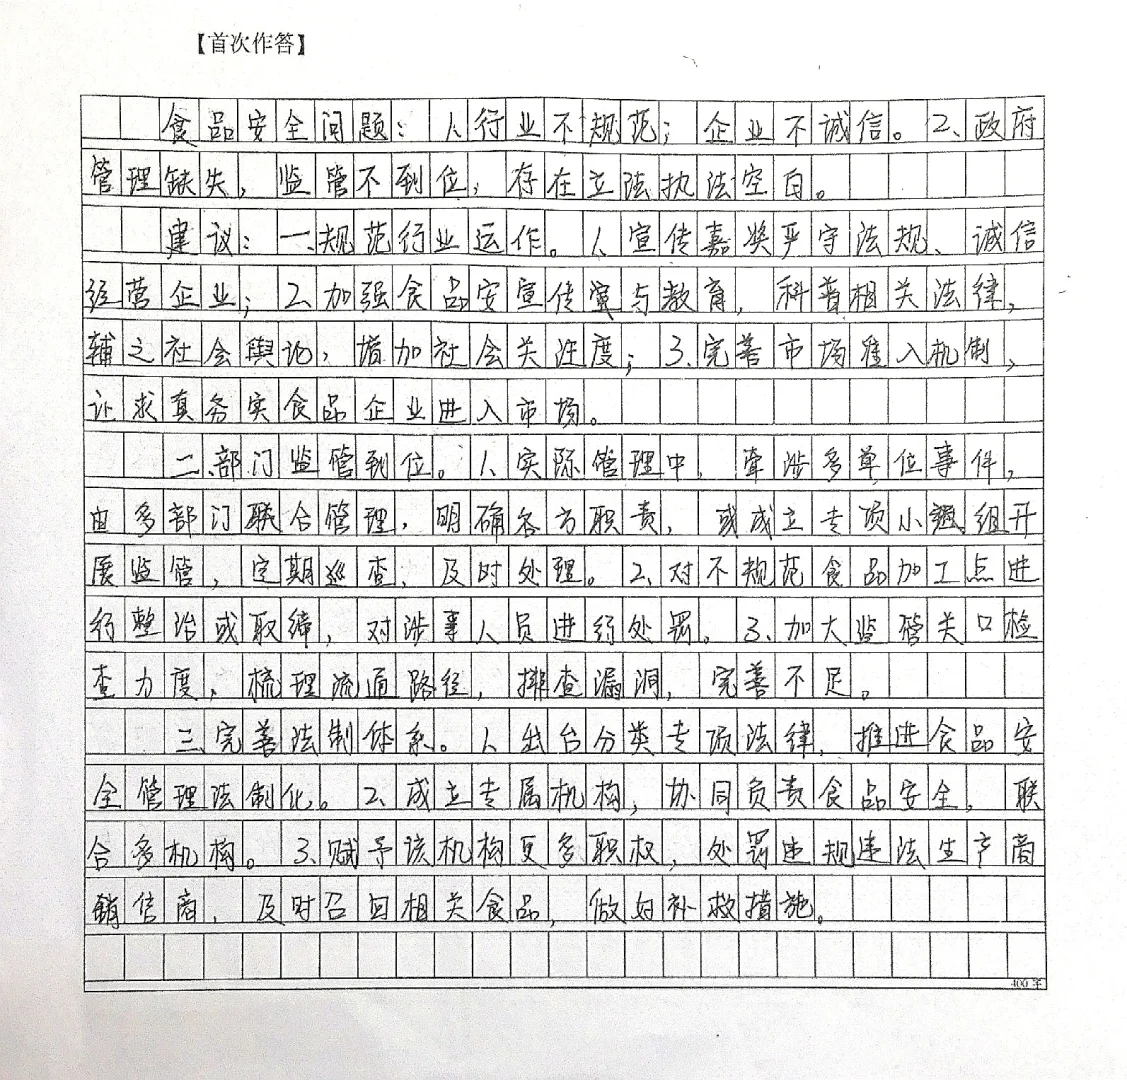 【首次作答】
食品安全问题：1、行业不规范；企业不诚信。2、政府
管理缺失，监管不到位，存在立法执法空白。
建议：一、规范行业运作。1、宣传嘉奖严守法规、诚信
经营企业；2、加强食品安宣传与教育，科普相关法律，
辅之社会舆论，增加社会关注度；3、完善市场准入机制，
让求真务实食品企业进入市场。
二、部门监管到位。1、实际管理中，牵涉多单位事件，
由多部门联合管理，明确各方职责，或成立专项小组开
展监管，定期巡查，及时处理。2、对不规范食品加工点进
行整治或取缔，对涉事人员进行处罚。3、加大监管关口检
查力度，梳理流通路径，排查漏洞，完善不足。
三、完善法制体系。1、出台分类专项法律，推进食品安
全管理法制化。2、成立专属机构，协同负责食品安全，联
合多机构。3、赋予该机构更多职权，处罚违规违法生产商
销售商，及时召回相关食品，做好补救措施。
400字